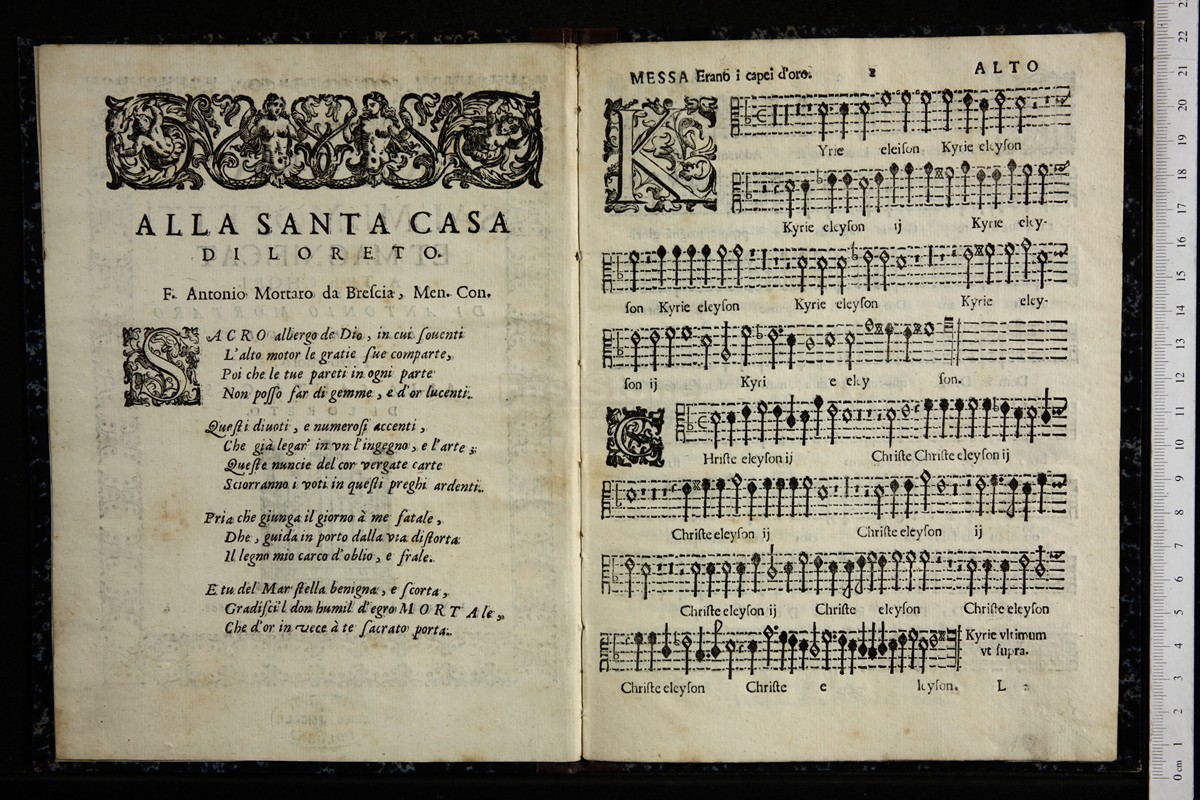 ALLA SANTA CASA
DI LORETO.
F. Antonio Mortaro da Breſcia, Men. Con.
SACRO albergo de Dio, in cui ſouenti
L'alto motor le gratie ſue comparte,
Poi che le tue pareti in ogni parte
Non poſſo far di gemme, e d'or lucenti.
Queſti diuoti, e numeroſi accenti,
Che già legar' in vn l'ingegno, e l'arte;
Queſte nuncie del cor vergate carte
Sciorranno i voti in queſti preghi ardenti.
Pria che giunga il giorno à me fatale,
Dhe, guida in porto dalla via diſtorta
Il legno mio carco d'oblio, e frale.
E tu del Mar ſtella benigna, e ſcorta,
Gradiſci'l don humil d'egro MORTAle,
Che d'or in vece à te ſacrato porta.
MESSA Erano i capei d'oro. 2 ALTO
KYrie eleiſon Kyrie eleyſon
Kyrie eleyſon ij Kyrie eley-
ſon Kyrie eleyſon Kyrie eleyſon Kyrie eley-
ſon ij Kyri e eley ſon.
CHriſte eleyſon ij Chriſte Chriſte eleyſon ij
Chriſte eleyſon ij Chriſte eleyſon ij
Chriſte eleyſon ij Chriſte eleyſon Chriſte eleyſon
Kyrie vltimum
vt ſupra.
Chriſte eleyſon Chriſte e leyſon. L 2
0 cm 1 2 3 4 5 6 7 8 9 10 11 12 13 14 15 16 17 18 19 20 21 22